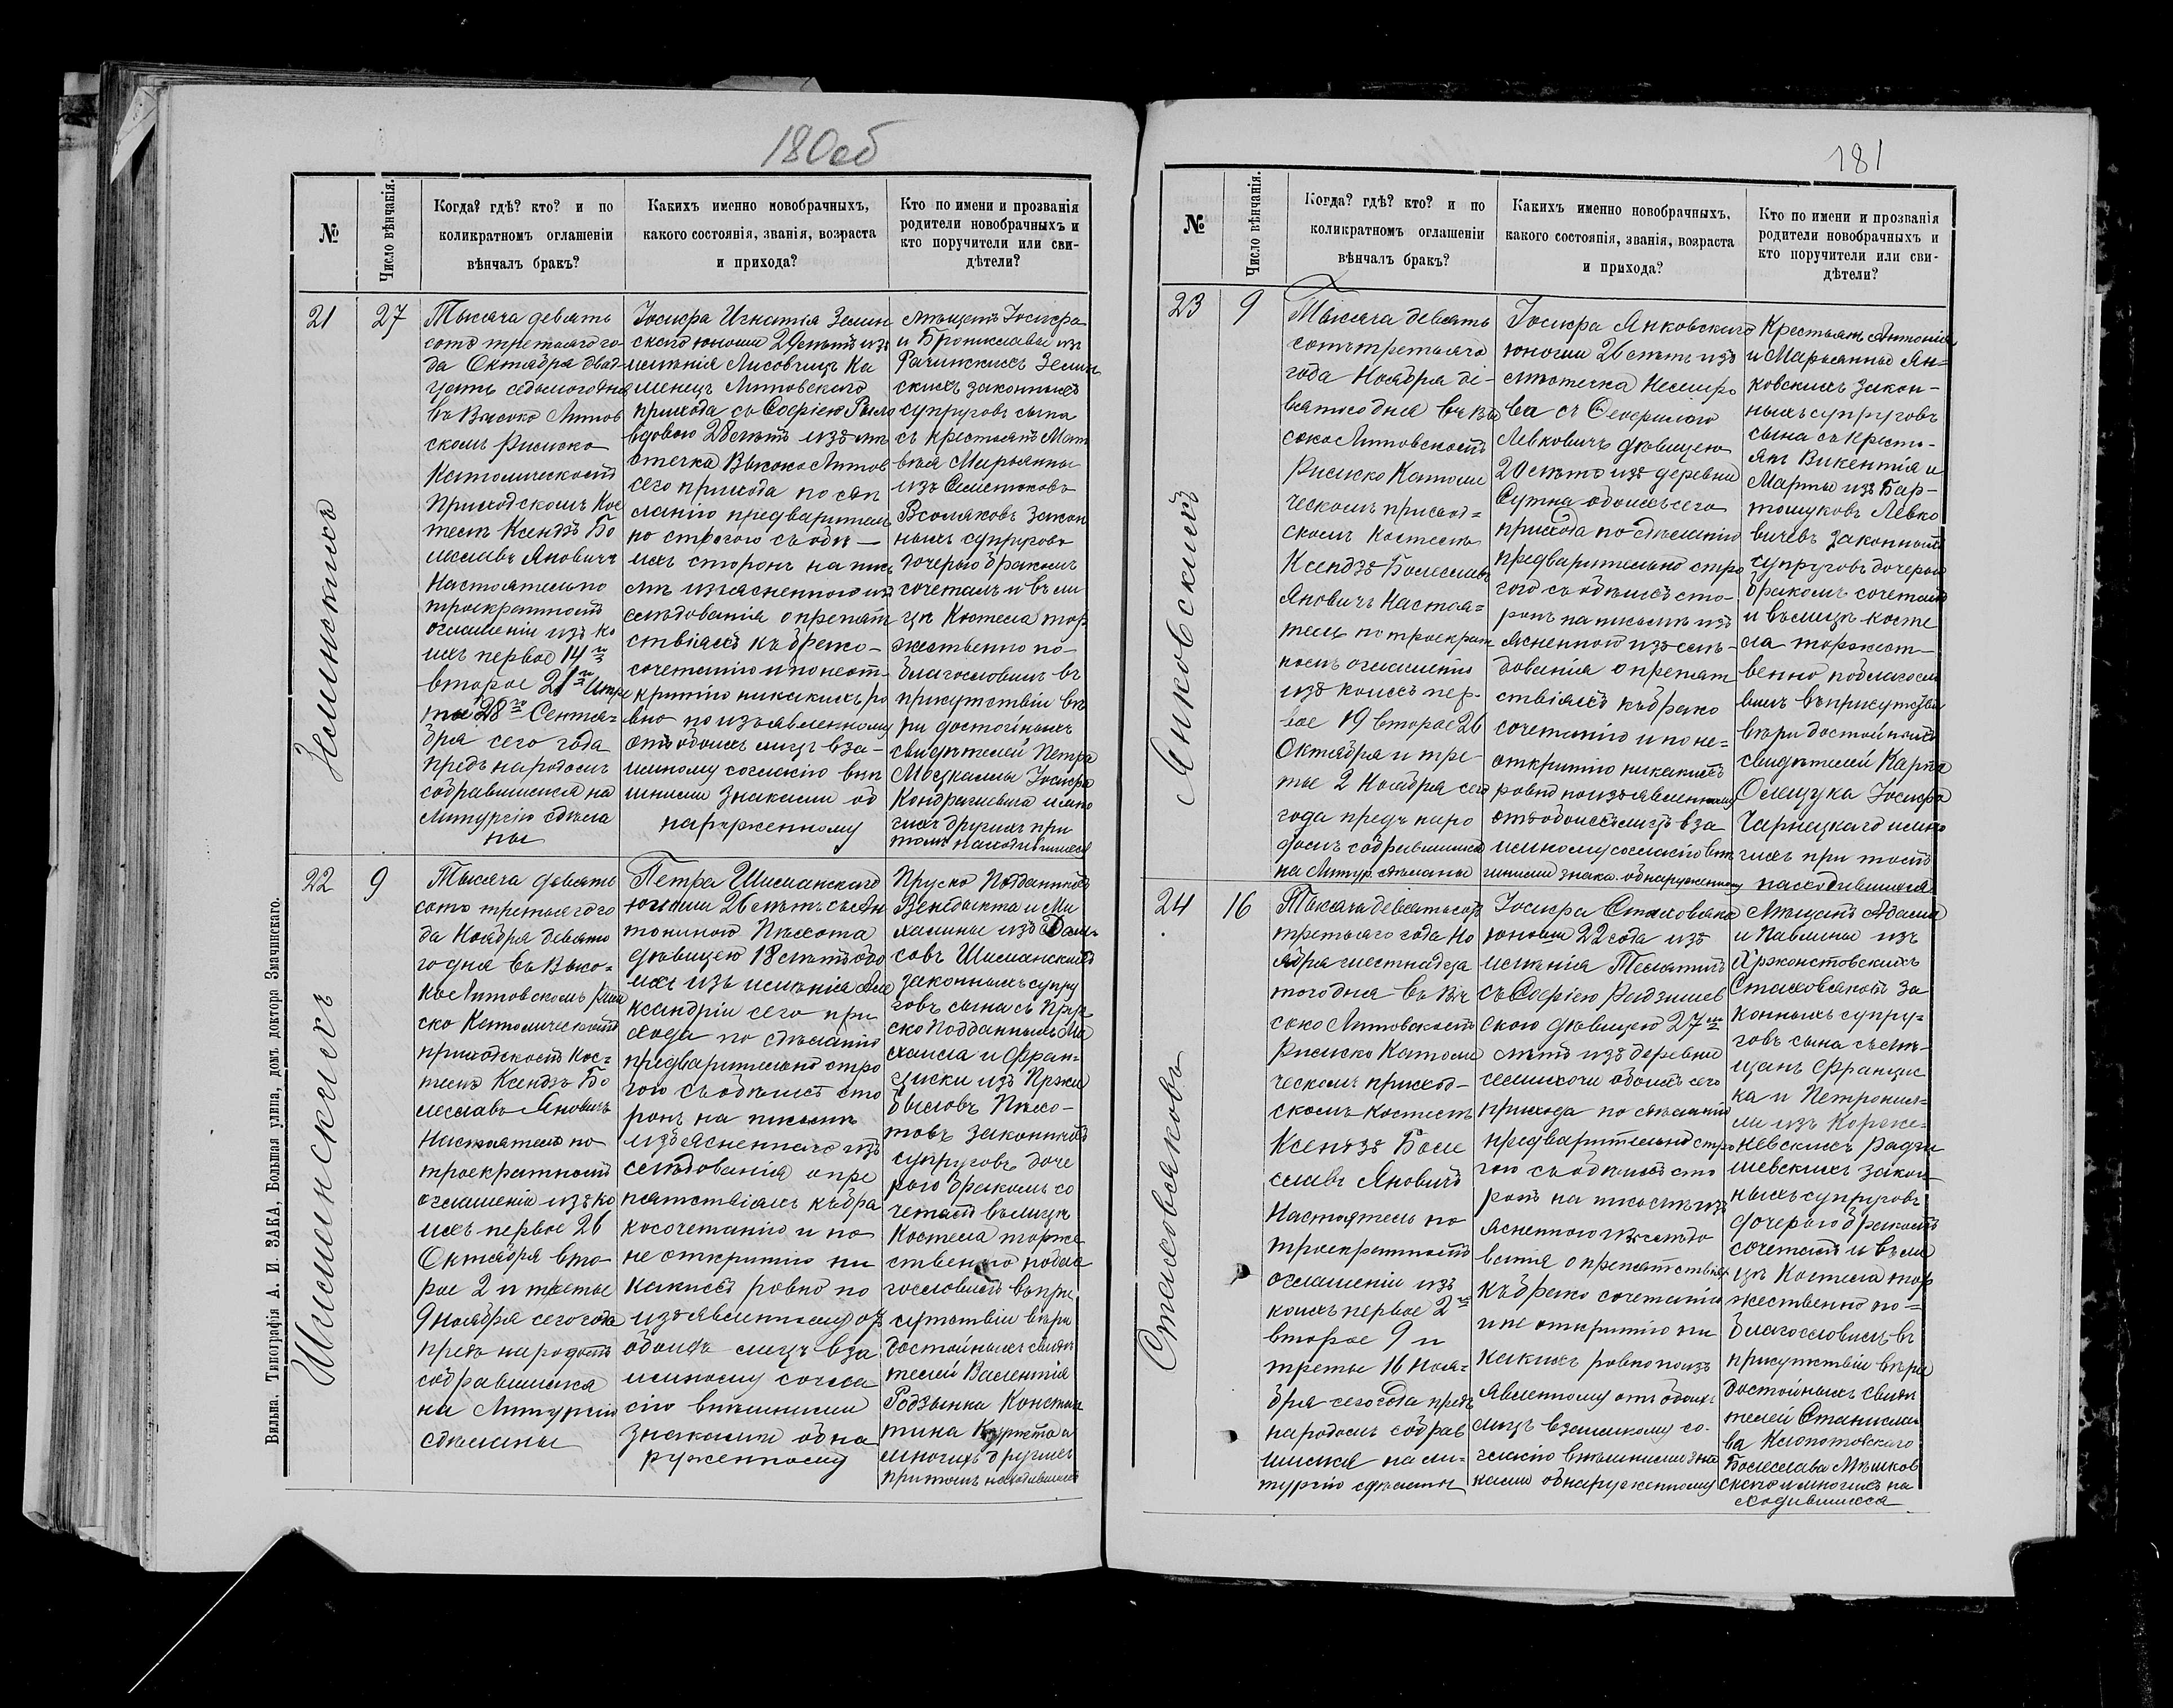 180об
№
Число вѣнчанія.
Когда? гдѣ? кто? и по
коликратномъ оглашеніи
вѣнчалъ бракъ?
Какихъ именно новобрачныхъ,
какого состоянія, званія, возраста
и прихода?
Кто по имени и прозванія
родители новобрачныхъ и
кто поручители или сви-
дѣтели?
21
27
Тысяча девять
сотъ третьяго го-
да Октября двад-
цать седьмого дня
въ Высоко Литов
скомъ Римско
Католическомъ
Приходскомъ Кос
телѣ Ксендзъ Бо
леславъ Яновичъ
Настоятель по
троекратномъ
оглашеніи изъ ко
ихъ первое 14го
второе 21го и тре
тье 28го Сентя-
бря сего года
предъ народомъ
собравшимся на
Литургію сдѣла
ны
Іосифа Игнатія Зелин
скаго юношу лѣтъ изъ
имѣнія Лисовчицъ Ка
менецъ Литовскаго
прихода съ Софіею
вдовою 28 лѣтъ изъ мѣ
стечка Высоко Литов
сего прихода по сдѣ
ланію предварител
но строгого съ обѣ-
ихъ сторонъ на пис
мѣ изъясненного из
слѣдованія о препят
ствіяхъ къ брако-
сочетанію и по неот
крытію никакихъ ро
вно по изъявленному
отъ обоихъ лицъ вза-
имному согласію внѣ
шними знаками об
наруженному
мѣщанъ Іосифа
и Брониславы изъ
Рачинскихъ Зелин
скихъ законныхъ
супруговъ сына
съ крестьянъ Мат
вѣя Марьянны
изъ
закон
ныхъ супруговъ
дочерью бракомъ
сочеталъ и въ ли
цѣ Костела тор
жественно по-
благословилъ въ
присутствіи вѣ
ры достойныхъ
свидѣтелей Петра
Іосифа
Кондрацевича и мно
гихъ другихъ при
томъ находившихся
Зелинскихъ
22
9
Тысяча девять
сотъ третьяго го
да Ноября девято
го дня въ Высо-
ко Литовскомъ Рим
ско Католическомъ
приходскомъ Кос-
телѣ Ксендзъ Бо
леславъ Яновичъ
Настоятель по
троекратномъ
оглашеніи изъ ко
ихъ первое 26
Октября вто-
рое 2 и третье
9 Ноября сего года
предъ народомъ
собравшимся
на Литургію
сдѣланы
Петра Шиманскаго
юношу 26 лѣтъ съ Ан
тониною Пѣхота
дѣвицею 18 лѣтъ обо
ихъ изъ имѣнія Але
ксандріи сего при
хода по сдѣланію
предварительно стро
гого съ обѣихъ сто
ронъ на письмѣ
изъясненного из
слѣдованія о пре
пятствіяхъ къ бра
косочетанію и по
не открытію ни
какихъ ровно по
изъявленному отъ
обоихъ лицъ вза
имному согла
сію внѣшними
знаками обна
руженному
Пруско Подданныхъ
Венедыкта и Ми
халины изъ
Шиманскихъ
законныхъ супру
говъ сына съ Пру
ско Подданныхъ Ми
хаила и Фран-
циски изъ
Пѣхо-
товъ законныхъ
супруговъ доче
рью бракомъ со
четалъ въ лицѣ
Костела торже
ственно побла
гословилъ въ при
сутствіи вѣры
достойныхъ свидѣ
телей Валентія
Констан
тина и
многихъ другихъ
притомъ находившихся
Шиманскихъ
Вильна, Типографія А. И. ЗАКА, Большая улица, домъ доктора Змачинскаго.
181
№
Число вѣнчанія.
Когда? гдѣ? кто? и по
коликратномъ оглашеніи
вѣнчалъ бракъ?
Какихъ именно новобрачныхъ,
какого состоянія, званія, возраста
и прихода?
Кто по имени и прозванія
родители новобрачныхъ и
кто поручители или сви-
дѣтели?
23
9
Тысяча девять
сотъ третьяго
года Ноября де-
вятого дня въ Вы
соко Литовскомъ
Римско Католи
ческомъ приход-
скомъ Костелѣ
Ксендзъ Болеславъ
Яновичъ Настоя-
тель по троекрат
номъ оглашеніи
изъ коихъ пер-
вое 19 второе 26
Октября и тре
тье 2 Ноября сего
года предъ наро
домъ собравшимся
на Литур. сдѣланы
Іосифа Янковскаго
юношу 26 лѣтъ изъ
мѣстечка Немиро
ва съ Северіною
Левковичъ дѣвицею
20 лѣтъ изъ деревни
Сутна обоихъ сего
прихода по сдѣланію
предварительно стро
гого съ обѣихъ сто-
ронъ на письмѣ изъ
ясненного изслѣ-
дованія о препят
ствіяхъ къ брако
сочетанію и по не-
открытію никакихъ
ровно по изъявленному
отъ обоихъ лицъ вза
имному согласію внѣ
шними знака. обнаруженному
Крестьянъ Антонія
и Марьянны Ян-
ковскихъ закон-
ныхъ супруговъ
сына съ кресть-
янъ Викентія и
Марты изъ Бар-
тошуковъ Левко
вичевъ законныхъ
супруговъ дочерью
бракомъ сочеталъ
и въ лицѣ Косте
ла торжест-
венно поблагосло
вилъ въ присутствіи
вѣры достойныхъ
свидѣтелей Карпа
Олещука Іосифа
Чарнецкаго и мно
гихъ при томъ
находившихся
Янковскихъ
24
16
Тысяча девятьсотъ
третьяго года Но
ября шестнадца
того дня въ Вы
соко Литовскомъ
Римско Католи
ческомъ приход-
скомъ Костелѣ
Ксендзъ Боле
славъ Яновичъ
Настоятель по
троекратномъ
оглашеніи изъ
коихъ первое 2го
второе 9 и
третье 16 Ноя-
бря сего года предъ
народомъ собрав
шимся на Ли-
тургію сдѣланы
Іосифа Стаховяка
юношу 22 года изъ
имѣнія
съ Софіею Радзишев
скою дѣвицею 27ми
лѣтъ изъ деревни
обоихъ сего
прихода по сдѣланію
предварительно стро
гого съ обѣихъ сто
ронъ на письмѣ изъ
ясненного изслѣдо
ванія о препятствіяхъ
къ брако сочетанію
и не открытію ни
какихъ ровно по изъ
явленному отъ обоихъ
лицъ взаимному со-
гласію внѣшними зна
ками обнаруженному
Мѣщанъ Адама
и Павлины изъ
Стаховяковъ за
конныхъ супру-
говъ сына съ мѣ-
щанъ Францис
ка и Петронел-
ли изъ Корже-
невскихъ Радзи
шевскихъ закон
ныхъ супруговъ
дочерью бракомъ
сочеталъ и въ ли
цѣ Костела тор
жественно по-
благословилъ въ
присутствіи вѣры
достойныхъ свидѣ
телей Станисла-
ва Клопотовскаго
Болеслава Мѣшков
скаго и многихъ на
ходившихся
Стаховяковъ